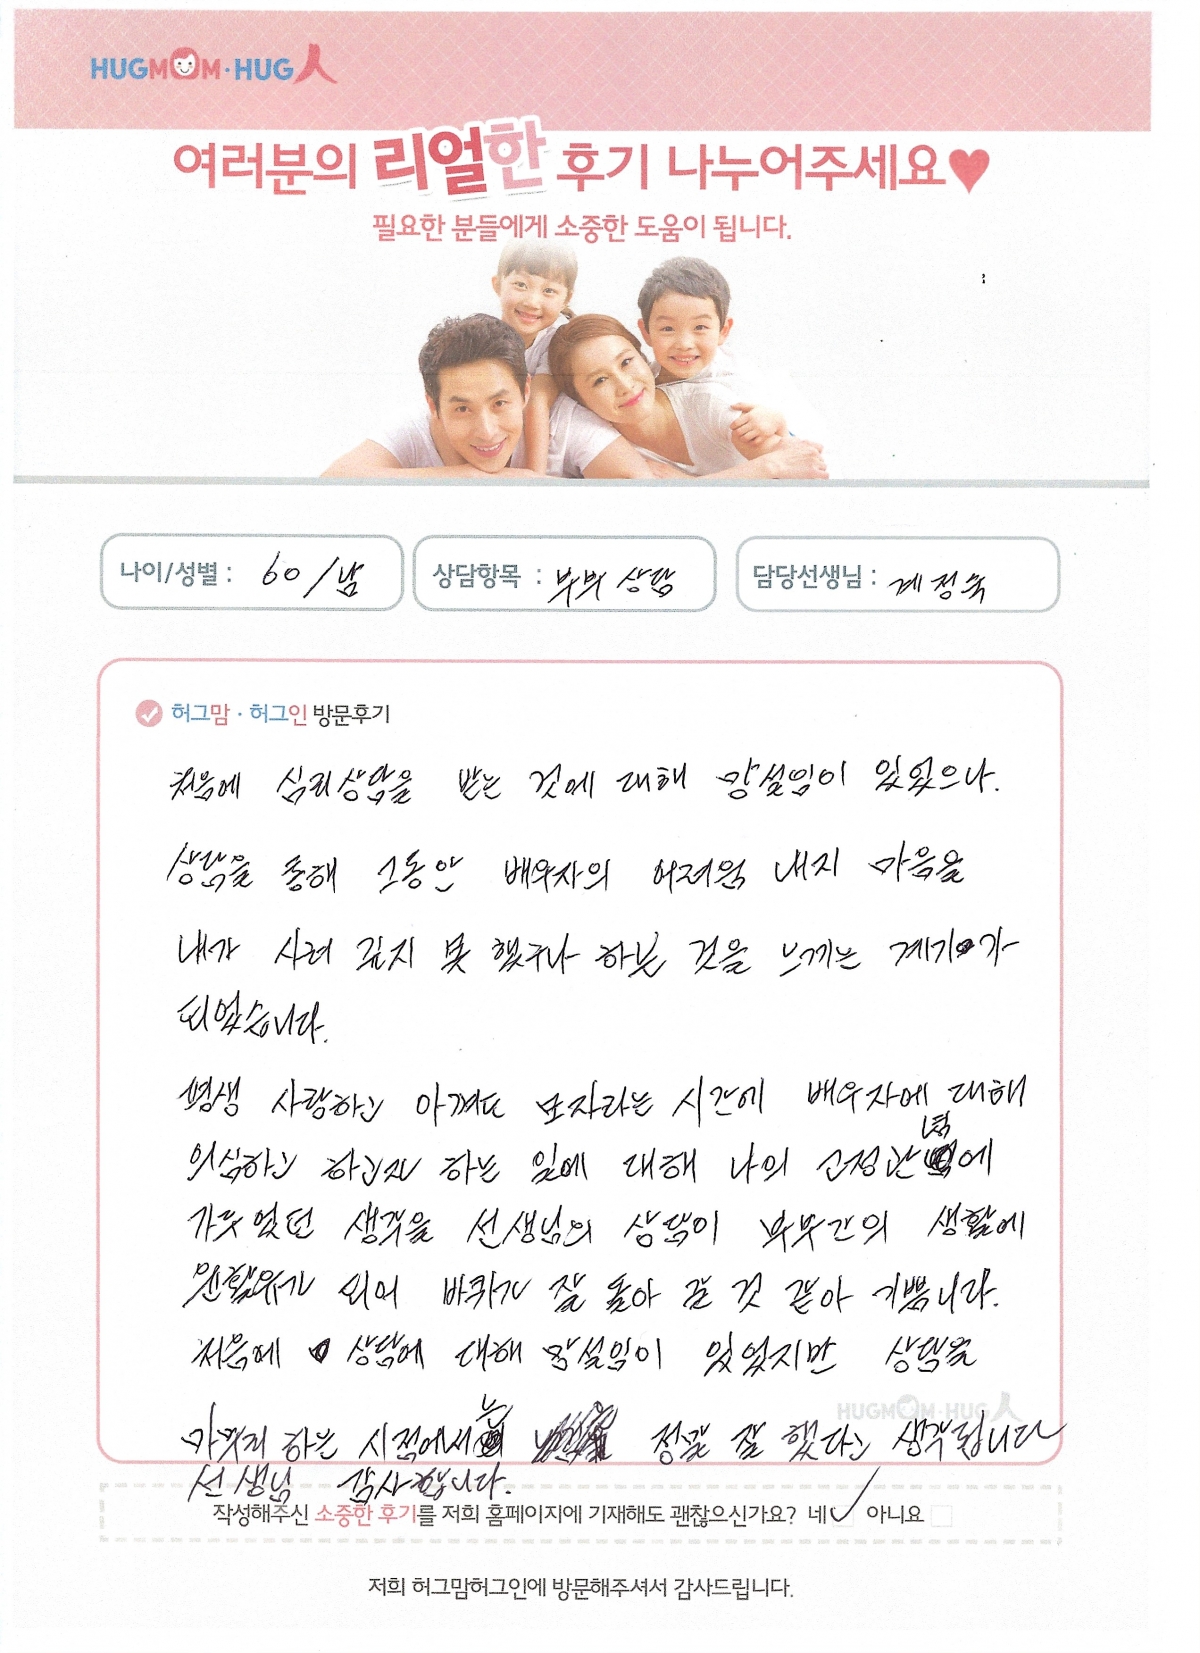 HUGMOM·HUG人
여러분의 리얼한 후기 나누어주세요♥
필요한 분들에게 소중한 도움이 됩니다.
나이/성별 : 60/남
상담항목 : 부부상담
담당선생님 : 계정숙
허그맘·허그인 방문후기
처음에 심리상담을 받는 것에 대해 망설임이 있었으나.
상담을 통해 그동안 배우자의 어려워 내지 마음을
내가 사려 깊지 못했구나 하는 것을 느끼는 계기가
되었습니다.
평생 사랑하고 아껴도 모자라는 시간에 배우자에 대해
의심하고 하고자 하는 일에 대해 나의 고정관념에
가두었던 생각을 선생님의 상담이 부부간의 생활에
윤활유가 되어 바퀴가 잘 돌아 갈 것 같아 기쁩니다.
처음에 상담에 대해 망설임이 있었지만 상담을
마무리 하는 시점에서는 정말 잘 했다고 생각됩니다
HUGMOM·HUG人
선생님 감사합니다.
작성해주신 소중한 후기를 저희 홈페이지에 기재해도 괜찮으신가요? 네 ✓ 아니요
저희 허그맘허그인에 방문해주셔서 감사드립니다.